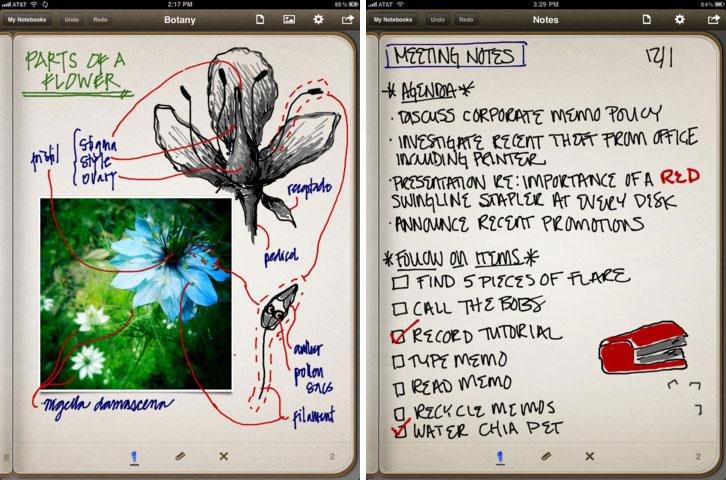 AT&T 2:17 PM 95%
My Notebooks Undo Redo Botany
PARTS OF A
FLOWER
pistil
stigma
style
ovary
receptacle
pedicel
anther
pollen
sacs
filament
nigella damascena
2
AT&T 3:29 PM 84%
My Notebooks Undo Redo Notes
MEETING NOTES
12/1
*AGENDA*
· DISCUSS CORPORATE MEMO POLICY
· INVESTIGATE RECENT THEFT FROM OFFICE
INCLUDING PRINTER
· PRESENTATION RE: IMPORTANCE OF A RED
SWINGLINE STAPLER AT EVERY DESK
· ANNOUNCE RECENT PROMOTIONS
*FOLLOW ON ITEMS*
FIND 5 PIECES OF FLARE
CALL THE BOBS
RECORD TUTORIAL
TYPE MEMO
READ MEMO
RECYCLE MEMOS
WATER CHIA PET
2